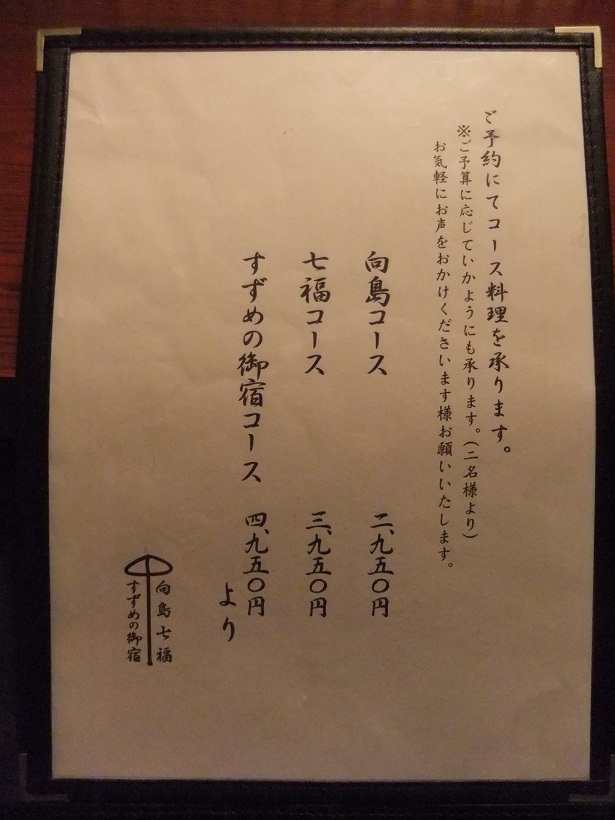 ご予約にてコース料理を承ります。
※ご予算に応じていかようにも承ります。(二名様より)
お気軽にお声をおかけくださいます様お願いいたします。
向島コース 二、九五〇円
七福コース 三、九五〇円
すずめの御宿コース 四、九五〇円
より
向島七福
すずめの御宿